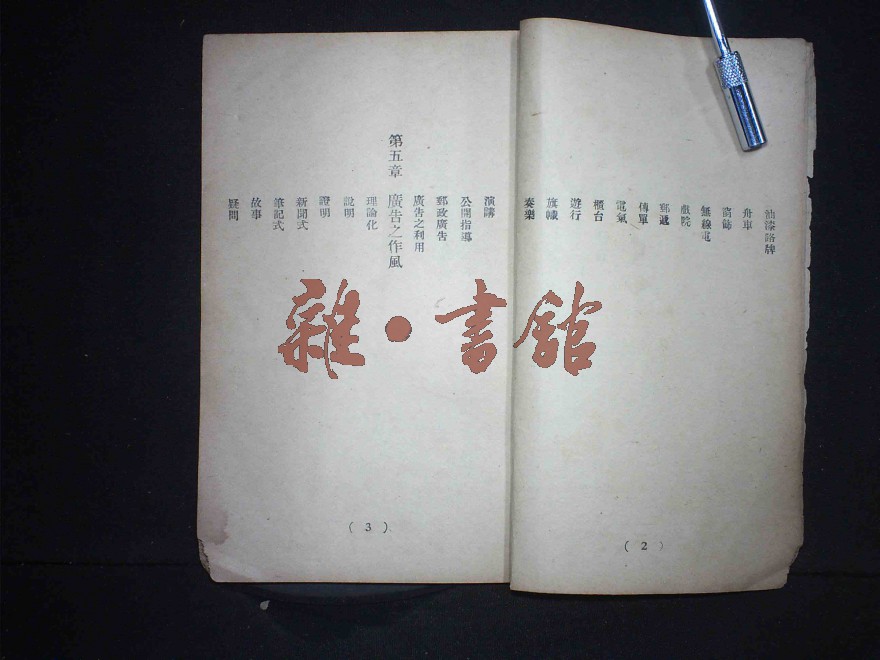 油漆路牌
舟車
窗飾
無線電
戲院
郵遞
傳單
電氣
櫃台
遊行
旗幟
奏樂
( 2 )
演講
公開指導
郵政廣告
廣告之利用
第五章 廣告之作風
理論化
說明
證明
新聞式
筆記式
故事
疑問
( 3 )
雜·書館